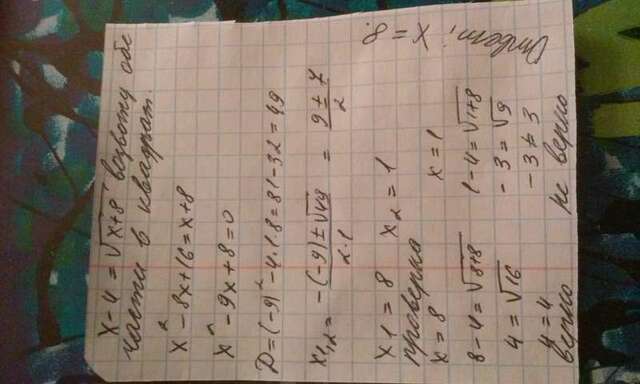 x-4=√x+8 возвожу обе
части в квадрат.
x²-8x+16=x+8
x²-9x+8=0
D=(-9)²-4·1·8=81-32=49
x1,2= -(-9)±√49 / 2·1 = 9±7 / 2
x1=8 x2=1
проверка
x=8 x=1
8-4=√8+8 1-4=√1+8
4=√16 -3=√9
4=4 -3≠3
верно не верно
Ответ: x=8.